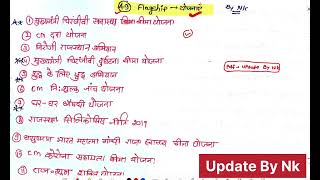 Flagship → योजनाएं
By NK
① मुख्यमंत्री चिरंजीवी स्वास्थ्य बीमा योजना
② CM दवा योजना
③ निरोगी राजस्थान अभियान
④ मुख्यमंत्री चिरंजीवी दुर्घटना बीमा योजना
Pdf → Update By Nk
⑤ शुद्ध के लिए युद्ध अभियान
⑥ CM निःशुल्क जाँच योजना
घर-घर औषधी योजना
राजस्थान सिलिकोसिस नीति 2019
महात्मा गांधी राज्य बीमा योजना
CM कोरोना सहायता योजना
योजना
Update By Nk